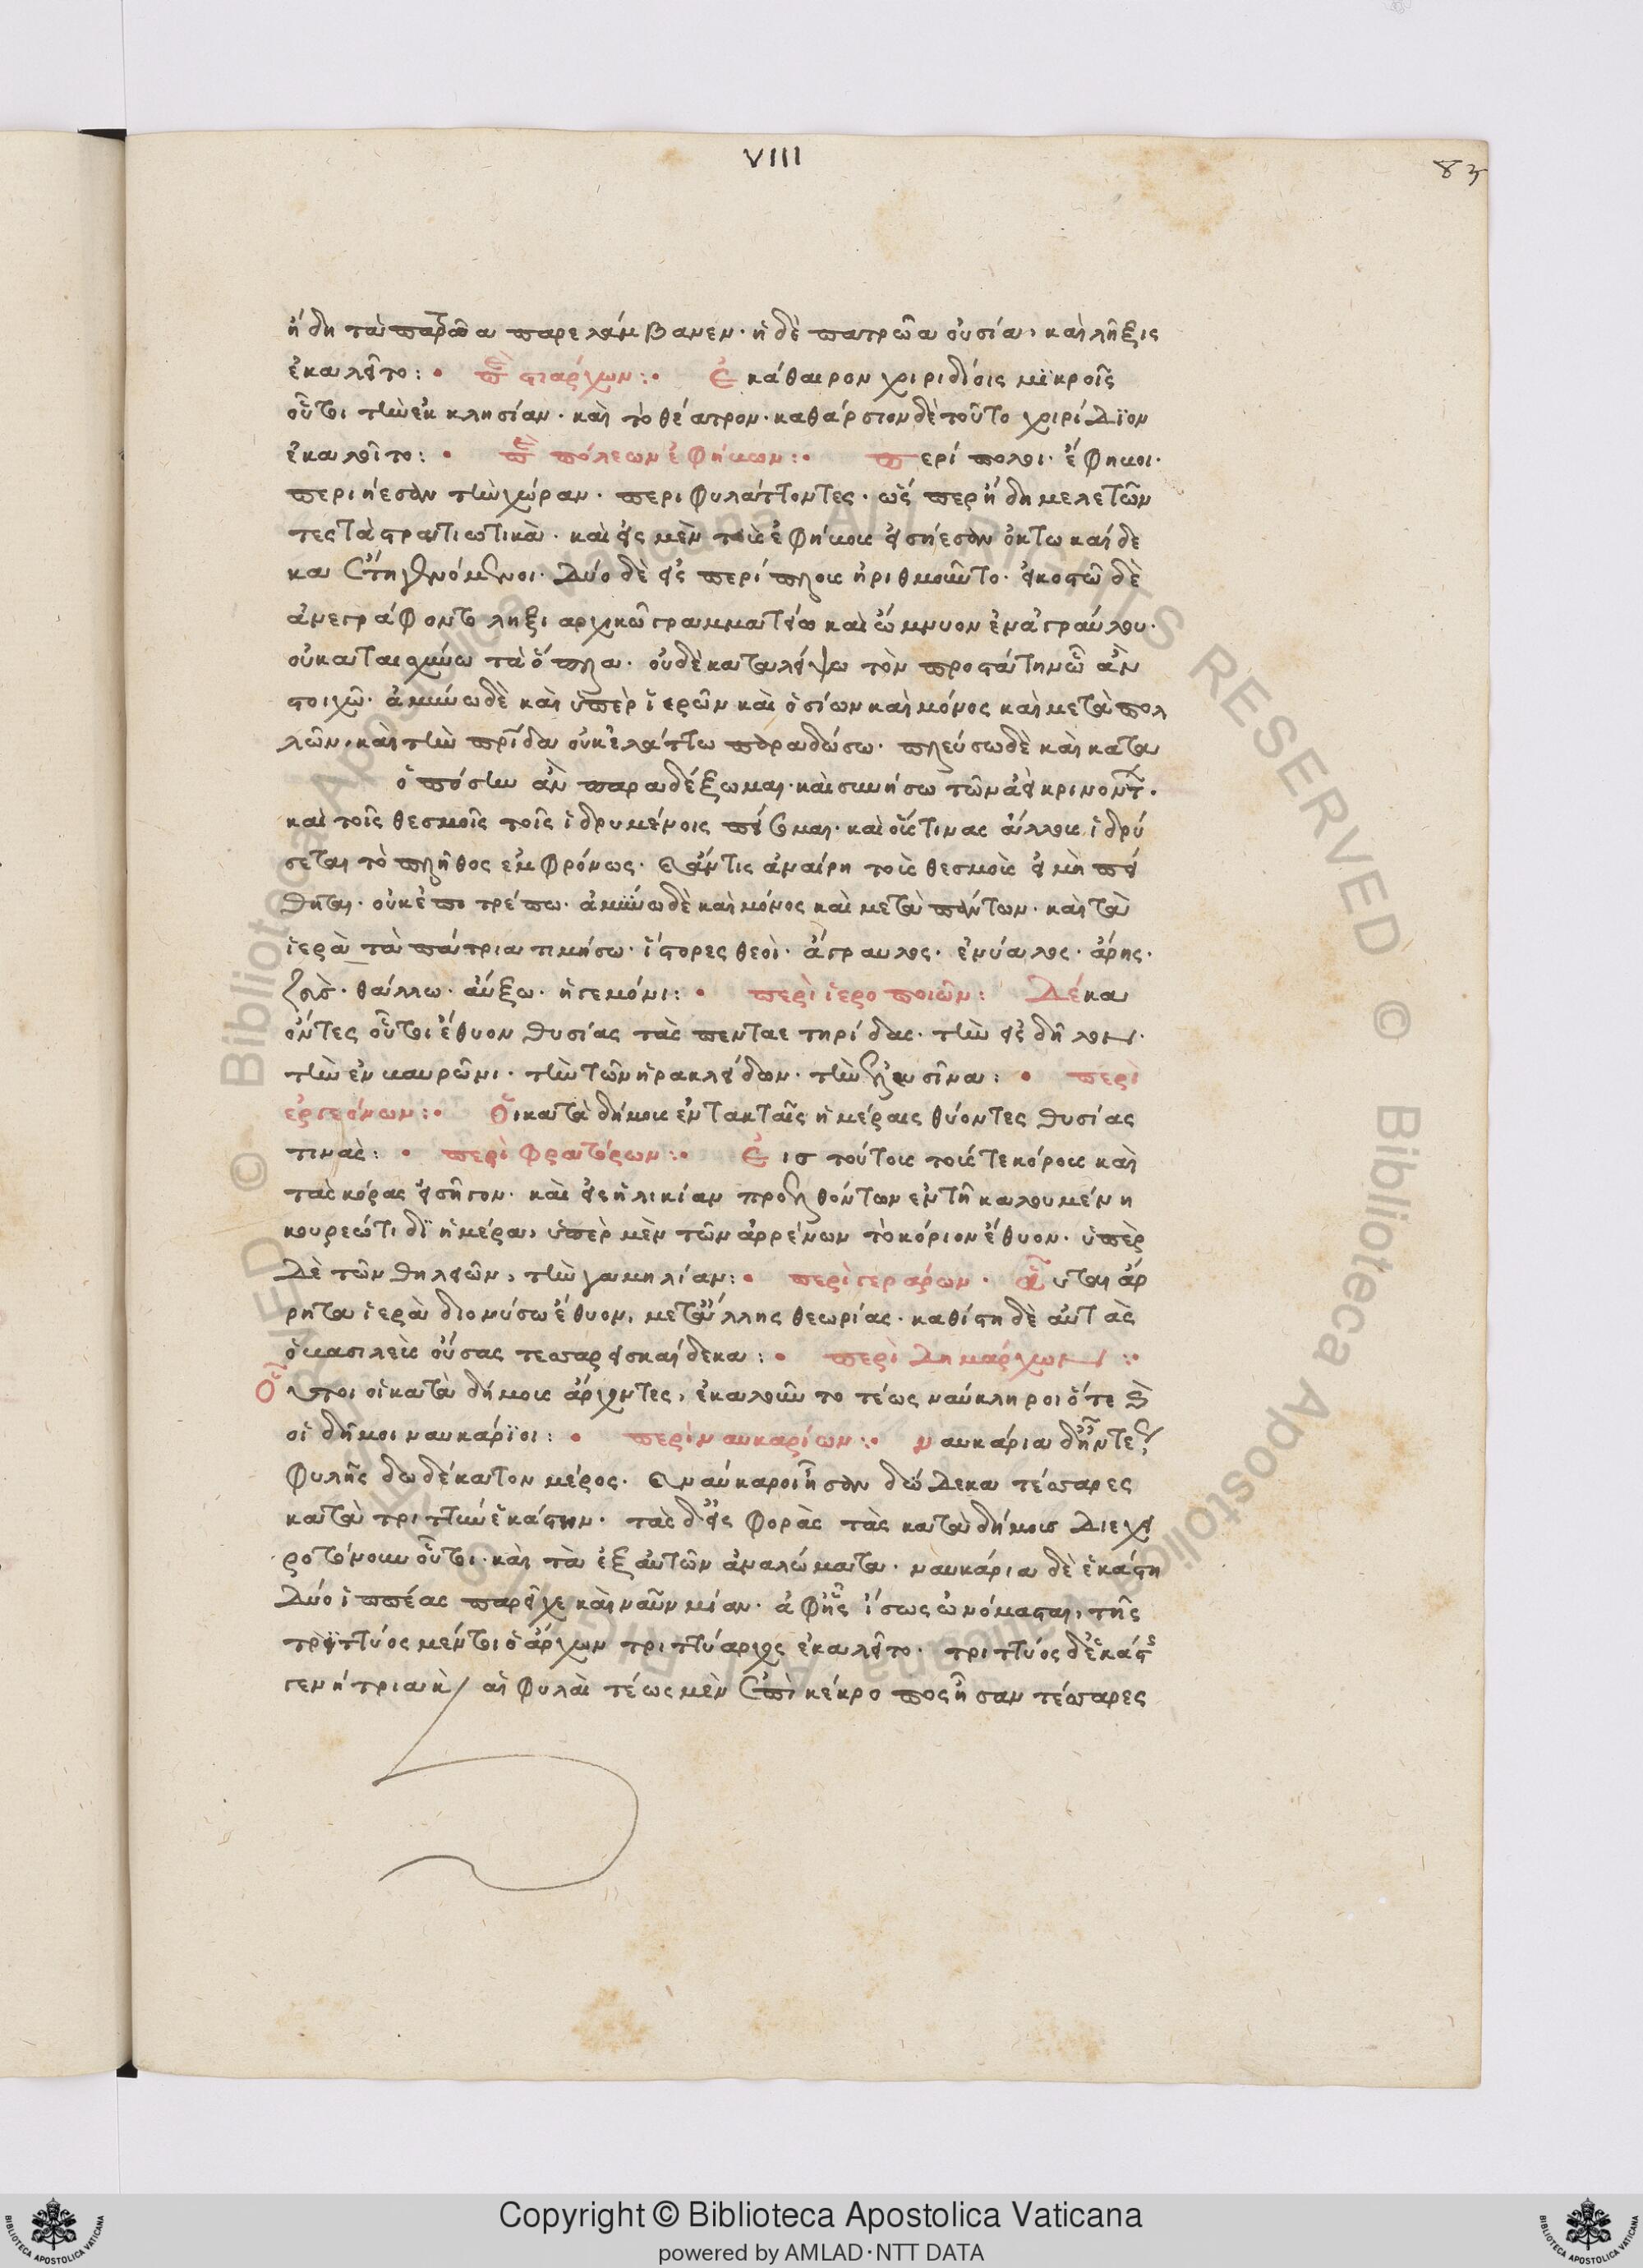 VIII
83
ἤδη τὰ πατρῶα παρελάμβανεν· ἡ δὲ πατρῶα οὐσία, καὶ λῆξις
ἐκαλεῖτο: • περὶ στιάρχων: • Ἐκάθαιρον χοιριδίοις μικροῖς
οὗτοι τὴν ἐκκλησίαν· καὶ τὸ θέατρον· καθάρσιον δὲ τοῦτο χοιρίδϊον
ἐκαλεῖτο: • περὶ πόλεων ἐφήβων: • Περίπολοι· ἔφηβοι·
περιῄεσαν τὴν χώραν· περιφυλάττοντες· ὥσπερ ἤδη μελετῶν
τες τὰ στρατιωτικά· καὶ εἰς μὲν τοὺς ἐφήβους εἰσῄεσαν ὀκτωκαίδε
κα ἔτη γενόμενοι· δύο δὲ εἰς περιπόλους ἠριθμοῦντο· εἰκοστῶ δὲ
ἀνεγράφοντο ληξιαρχικῶ γραμματείω καὶ ὤμνυον ἐν ἀγραύλου·
οὐ καταισχύνω τὰ ὅπλα· οὐδὲ καταλείψω τὸν προστάτην ὧ ἂν
στοιχῶ· ἀμύνω δὲ καὶ ὑπὲρ ἱερῶν καὶ ὁσίων καὶ μόνος καὶ μετὰ πολ
λῶν, καὶ τὴν πατρίδα οὐκ ἐλάττω παραδώσω· πλεύσω δὲ καὶ κατα
ὁπόσην ἂν παραδέξωμαι· καὶ συνήσω τῶν ἀεὶ κρινοντ·
καὶ τοῖς θεσμοῖς τοῖς ἱδρυμένοις πείσομαι· καὶ οὕστινας ἄλλους ἱδρύ
σεται τὸ πλῆθος ἐμφρόνως· καὶ ἄν τις ἀναίρη τοὺς θεσμοὺς ἢ μὴ πεί
θηται· οὐκ ἐπιτρέπω· ἀμύνω δὲ καὶ μόνος καὶ μετὰ πάντων· καὶ τὰ
ἱερὰ τὰ πάτρια τιμήσω· ἵστορες θεοὶ· ἄγραυλος· ἐνύαλος· ἄρης·
ζεὺς· θάλλω· αὔξω· ἡγεμόνι: • περὶ ἱεροποιῶν: Δέκα
ὄντες οὗτοι ἔθυον θυσίας τὰς πενταετηρίδας· τὴν εἰς δῆλον·
τὴν ἐν βαυρῶνι· τὴν τῶν ἡρακλείδων· τὴν ἐλευσῖνα: • περὶ
ἐργεόνων: • Οἱ κατὰ δήμους ἐν τακταῖς ἡμέραις θύοντες θυσίας
τινας: • περὶ φρατόρων: • Εἰσ τούτους τούς τε κόρους καὶ
τὰς κόρας εἰσῆγον· καὶ εἰς ἡλικίαν προελθόντων ἐν τῆ καλουμένη
κουρεώτιδϊ ἡμέρα, ὑπὲρ μὲν τῶν ἀρρένων τὸ κόριον ἔθυον· ὑπὲρ
δὲ τῶν θηλειῶν, τὴν γαμηλίαν: • περὶ γεραρῶν· Αὗται ἄρ
ρητα ἱερὰ διονύσω ἔθυον, μετ' ἄλλης θεωρίας· καθίστη δὲ αὐτὰς
ὁ βασιλεὺς οὔσας τεσσαρεσκαίδεκα: • περὶ δημάρχων: •
Οὗτοι οἱ κατὰ δήμους ἄρχοντες, ἐκαλοῦντο τέως ναύκληροι ὅτε καὶ
οἱ δῆμοι ναυκάρϊοι: • περὶ ναυκαρίων: • ναυκάρια δ' ἦν τέως
φυλῆς δωδέκατον μέρος· καὶ ναύκαροι ἦσαν δώδεκα τέσσαρες
κατὰ τριττὺν ἑκάστην· τὰς δ' εἰς φορὰς τὰς κατὰ δήμους διεχει
ροτόνουν οὗτοι· καὶ τὰ ἐξ αὐτῶν ἀναλώματα· ναυκάρια δὲ ἑκάστη
δύο ἱππέας παρεῖχε καὶ ναῦν μίαν· ἀφ' ἧς ἴσως ὠνόμασται, τῆς
τριττύος μέντοι ὁ ἄρχων τριττύαρχος ἐκαλεῖτο· τριττύος δ' ἑκάστης
γενή τριακ/ αἱ φυλαὶ τέως μὲν ἐπὶ κέκροπος ἦσαν τέσσαρες
© Biblioteca Apostolica Vaticana ALL RIGHTS RESERVED
Copyright © Biblioteca Apostolica Vaticana
powered by AMLAD·NTT DATA